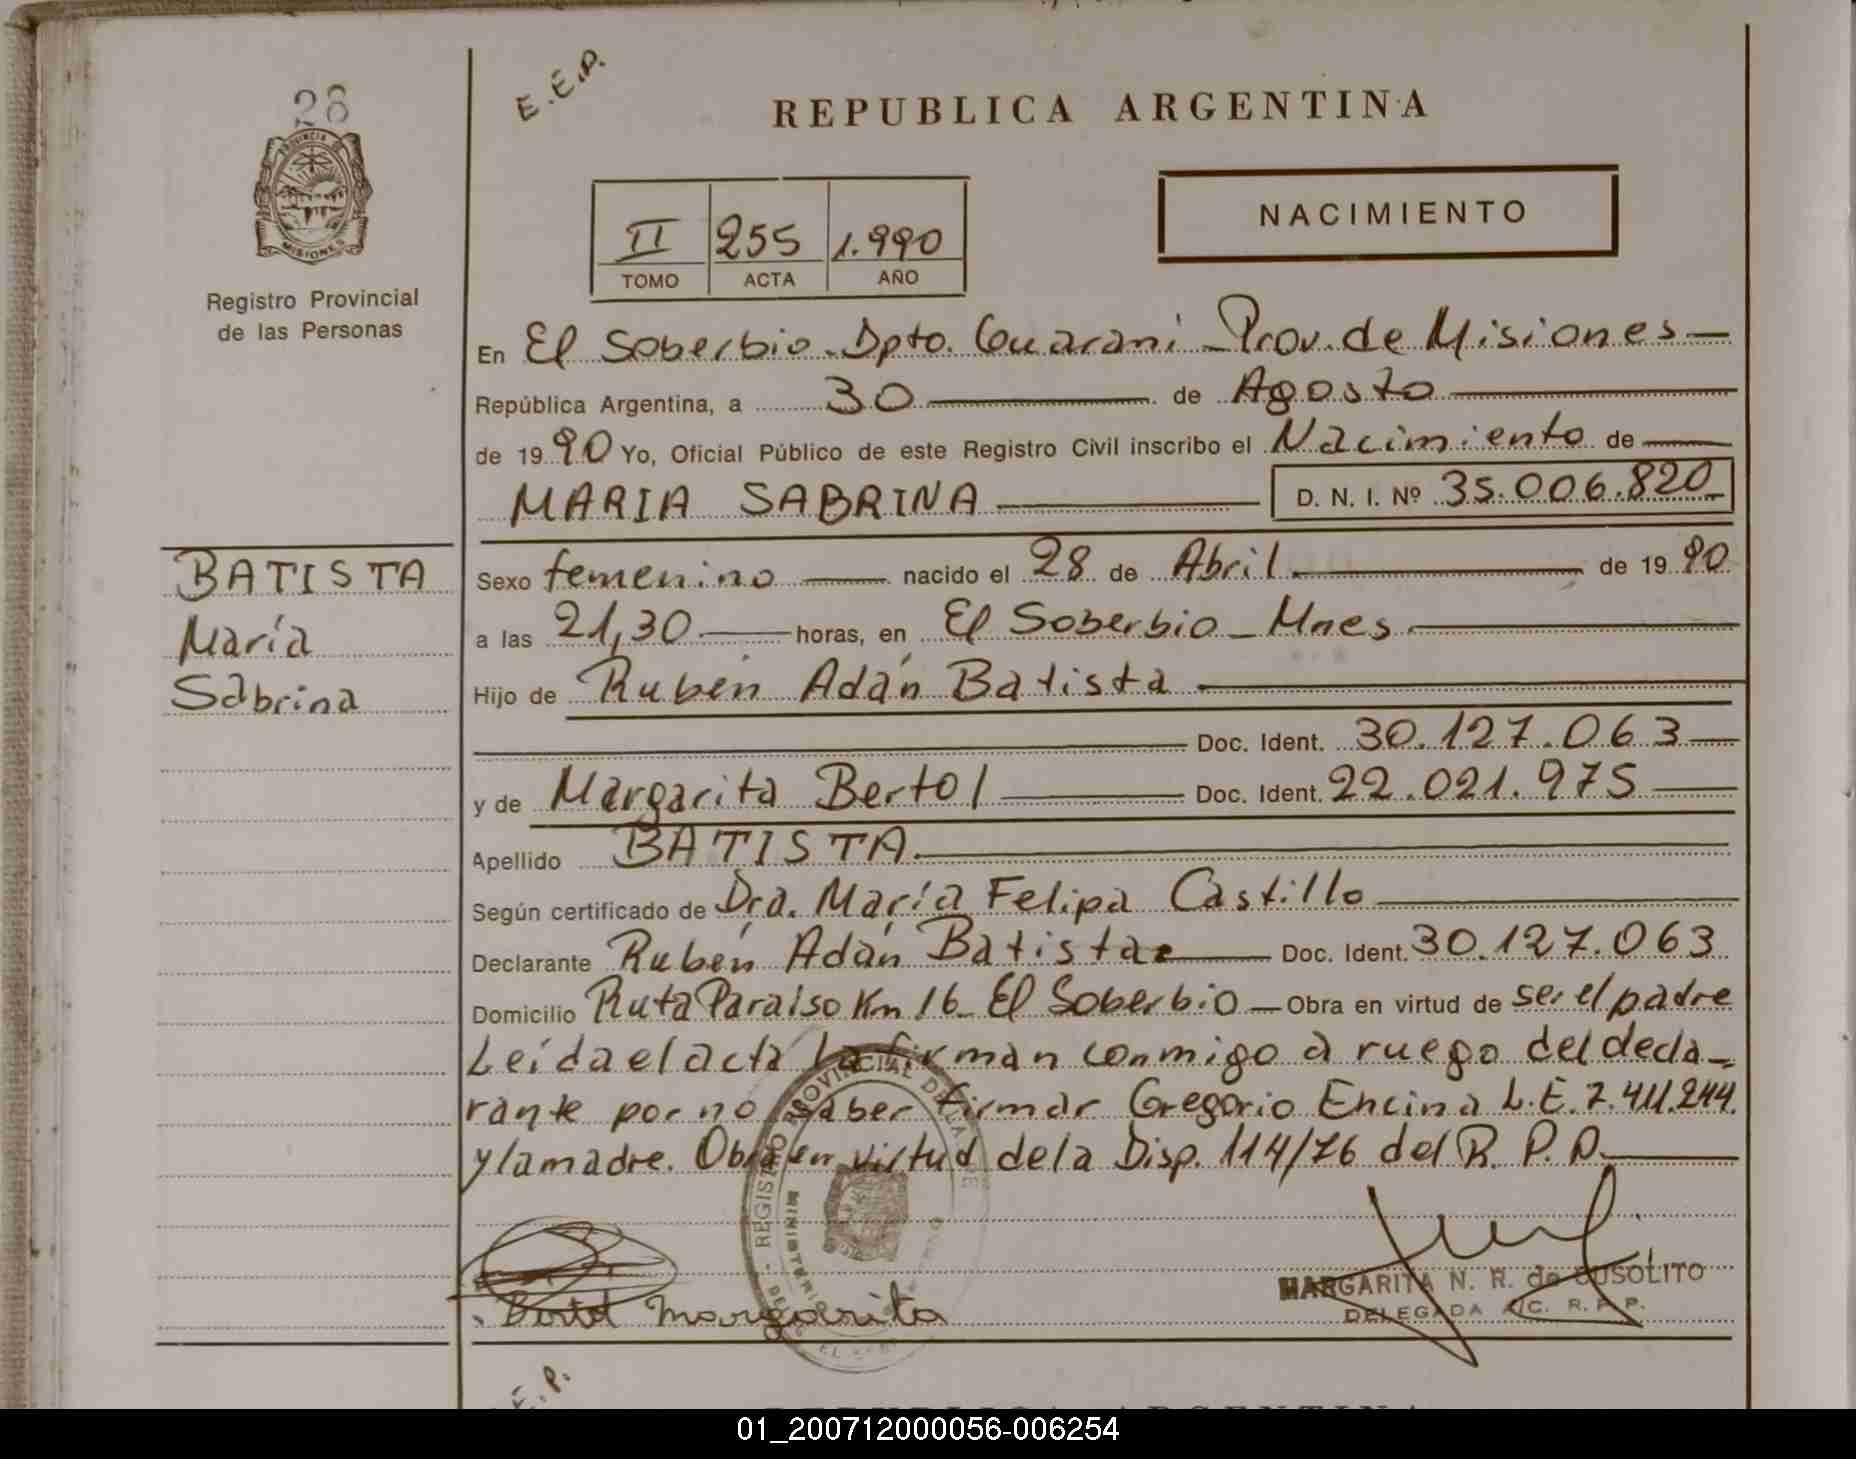 28
E.E.P.
REPUBLICA ARGENTINA
PROVINCIA
MISIONES
Registro Provincial
de las Personas
NACIMIENTO
II 255 1.990
TOMO ACTA AÑO
En El Soberbio. Dpto. Guaraní - Prov. de Misiones —
República Argentina, a 30 — de Agosto —
de 1990 Yo, Oficial Público de este Registro Civil inscribo el Nacimiento de —
MARIA SABRINA — D. N. I. Nº 35.006.820
BATISTA
María
Sabrina
Sexo femenino — nacido el 28 de Abril. — de 1990
a las 21,30 — horas, en El Soberbio - Mnes. —
Hijo de Rubén Adán Batista —
— Doc. Ident. 30.127.063 —
y de Margarita Bertol — Doc. Ident. 22.021.975 —
Apellido BATISTA. —
Según certificado de Dra. María Felipa Castillo —
Declarante Rubén Adán Batista — Doc. Ident. 30.127.063
Domicilio Ruta Paraiso Km 16 - El Soberbio — Obra en virtud de ser el padre
Leída el acta la firman conmigo a ruego del decla-
rante por no saber firmar Gregorio Encina L.E. 7.411.244.
y la madre. Obra en virtud de la Disp. 114/76 del R. P. P. —
REGISTRO PROVINCIAL DE LA
MINISTERIO
Bertol Margarita
MARGARITA N. R. de CUSOLITO
DELEGADA A/C. R. P. P.
E.P.
REPUBLICA ARGENTINA
01_200712000056-006254